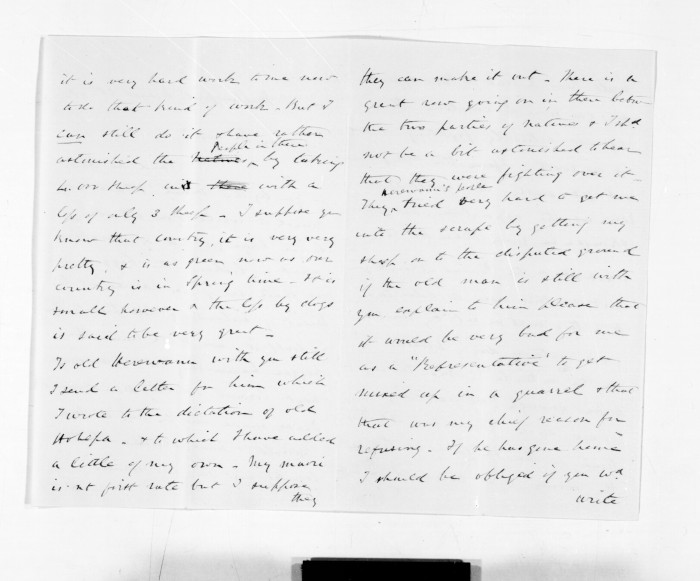 it is very hard work to me now
to do that kind of work - But I
can still do it & have rather
People in there
astonished the Natives, by taking
4,000 sheep, and there with a
loss of only 3 sheep - I suppose you
know that country, it is very very
pretty, & is as green now as our
country is in Spring time - It is
small however & the loss by dogs
is said to be very great -
Is old Herewanu with you still
I send a letter for him which
I wrote to the dictation of old
Hohepa - & to which I have added
a little of my own - My maori
is not first rate but I suppose
they
they can make it out - There is a
great row going on in there betwn
the two parties of natives & I shd
not be a bit astonished to hear
that they were fighting over it -
Herewanu's people
They, tried very hard to get me
into the scrape by getting my
sheep on to the disputed ground
if the old man is still with
you explain to him please that
it would be very bad for me
as a "Representative" to get
mixed up in a quarrel & that
that was my chief reason for
refusing - If he has gone home
I should be obliged if you wd
write